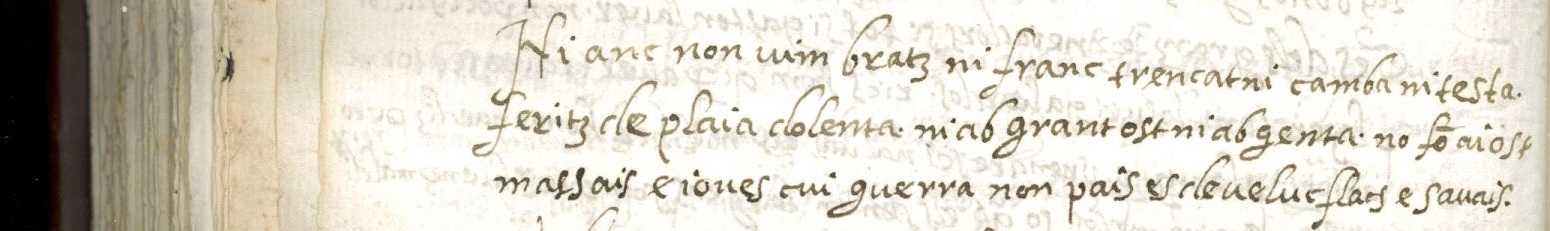 Ni anc non vim bratz ni franc trencat ni camba ni testa.
feritz de plaia dolenta. ni ab grant ost ni ab genta. no fō aiost
massais e ioves cui guerra non pais es develuc flacs e savais.